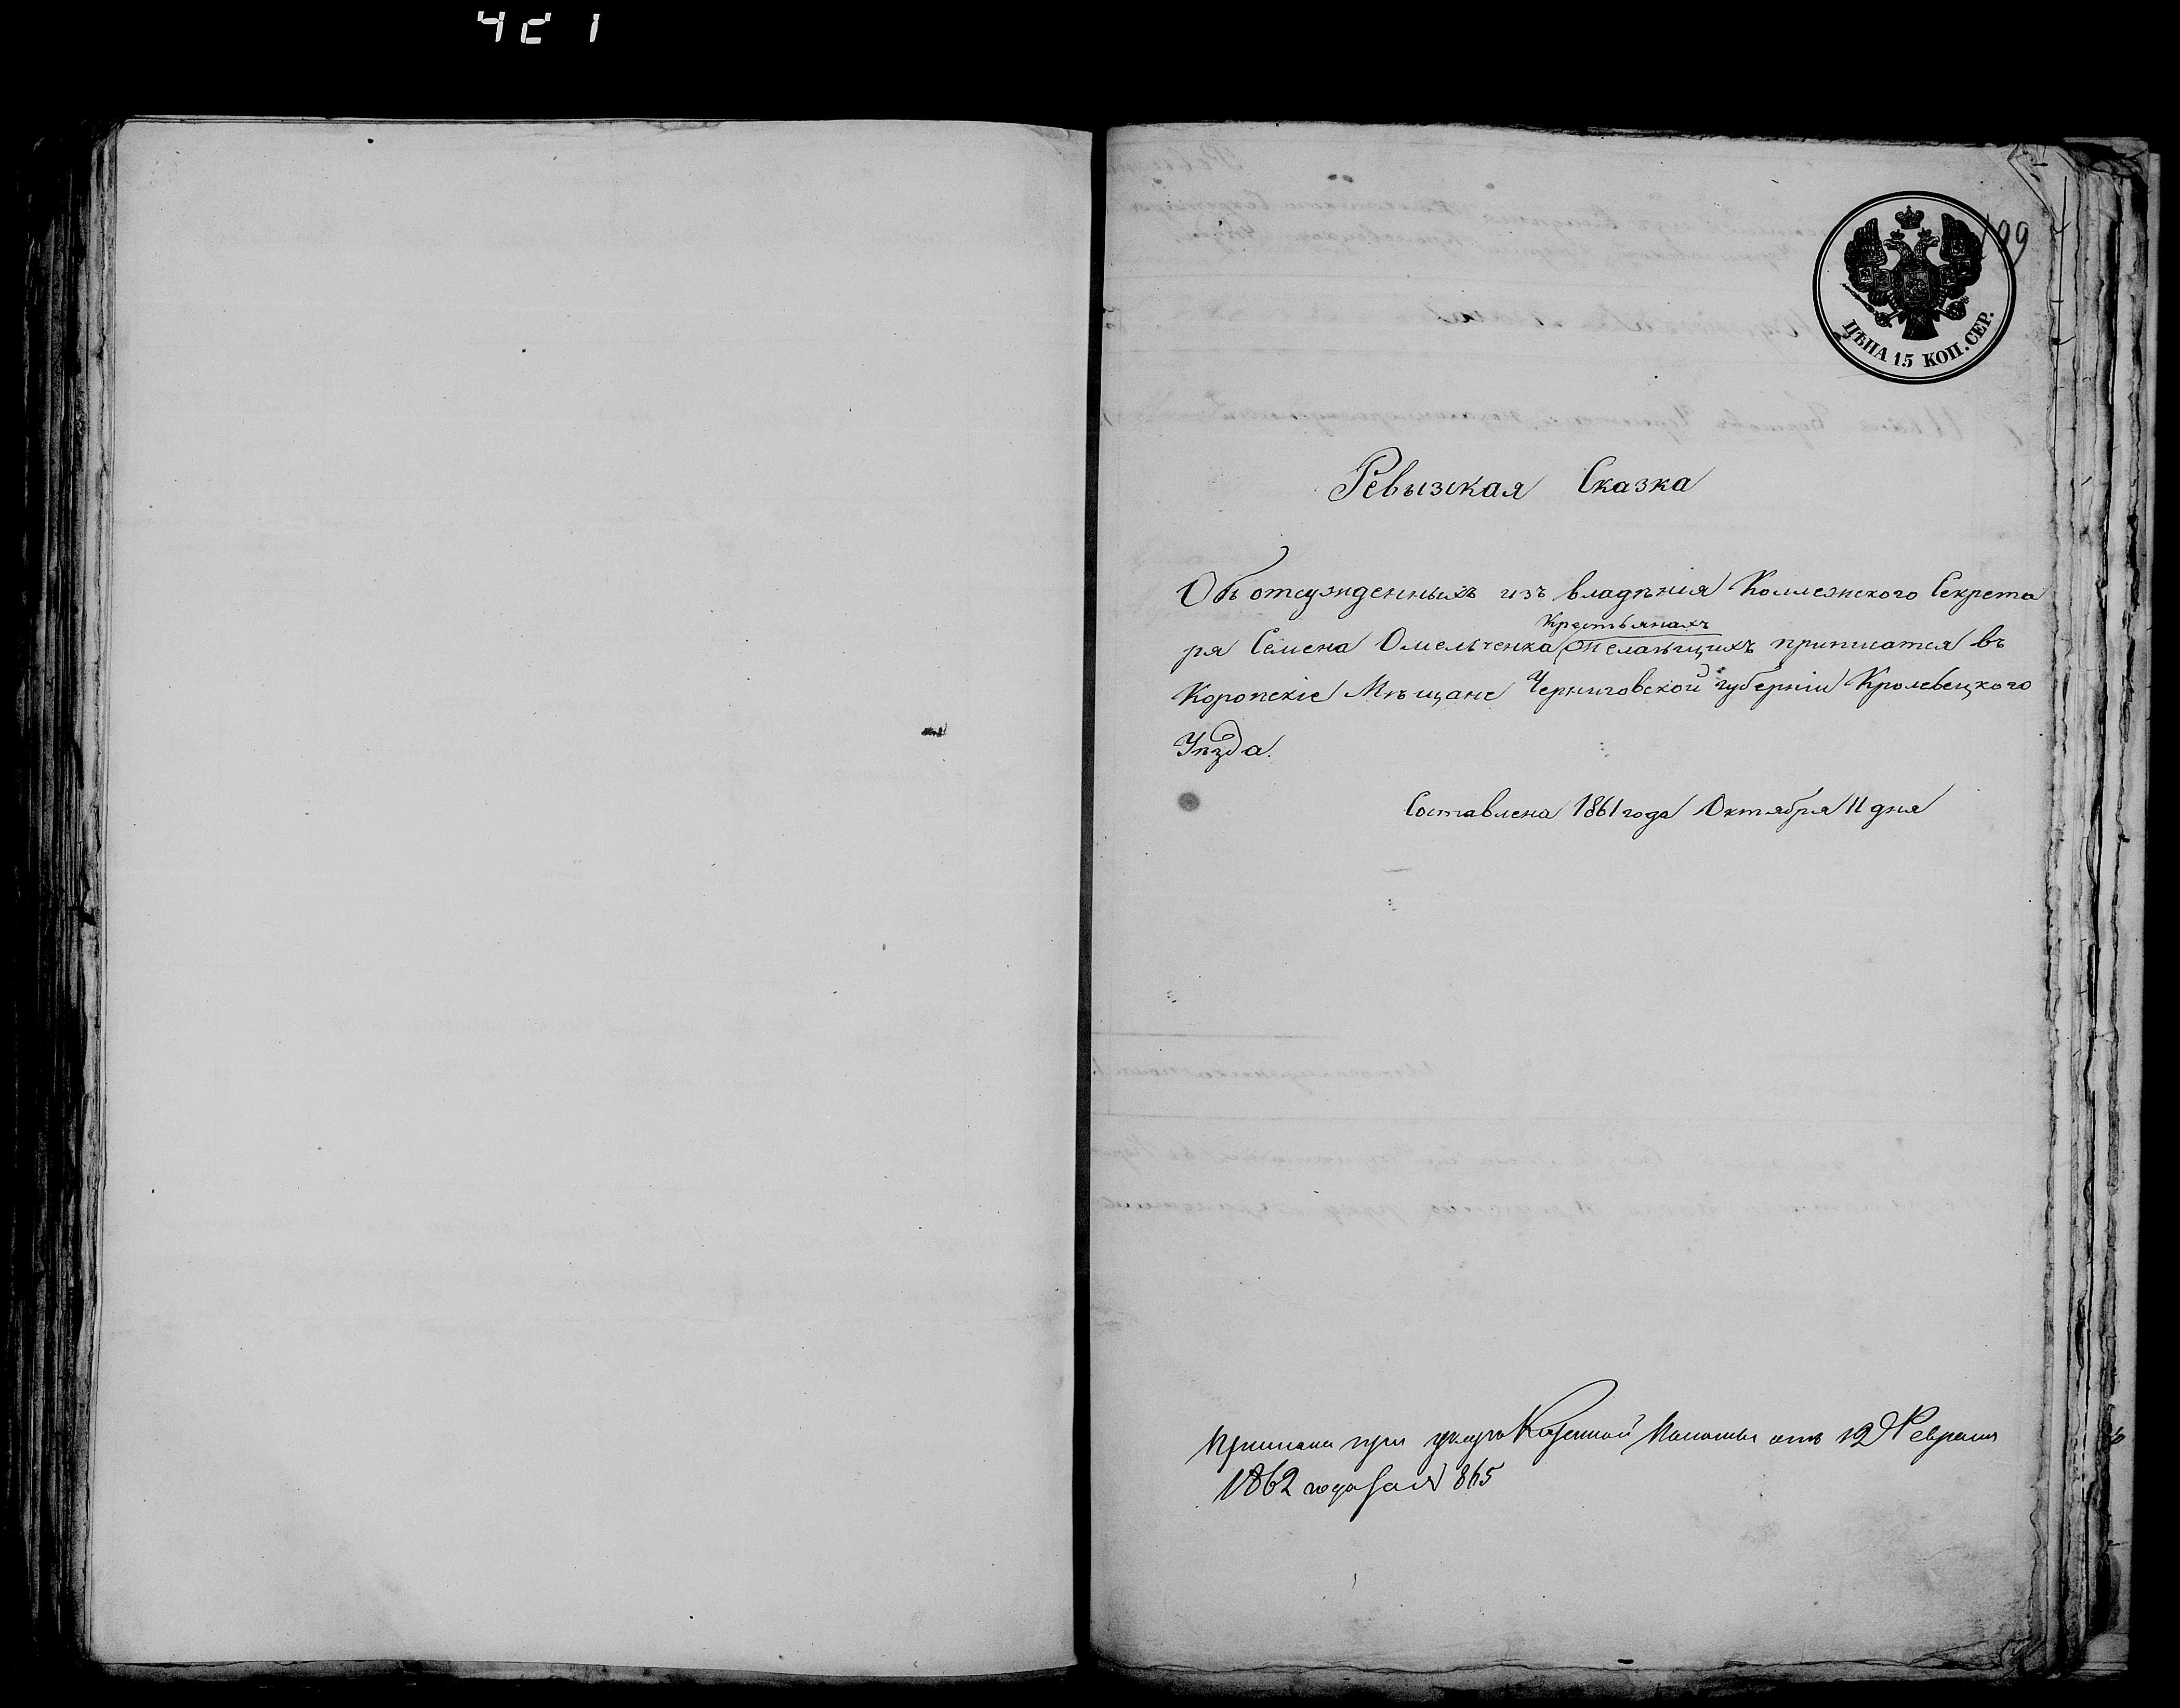 421
199
ЦѢНА 15 КОП. СЕР.
Ревызская Сказка
Объ отсужденныхъ изъ владѣнія Коллежского Секрета
Крестьянахъ
ря Семена Омельченка, желающихъ приписатся въ
Коропскіе Мѣщане Черниговской губерніи Кролевецкого
Уѣзда.
Составлена 1861 года Октября 11 дня
при указѣ Казенной Палаты отъ 12 Февраля
1862 года за № 865